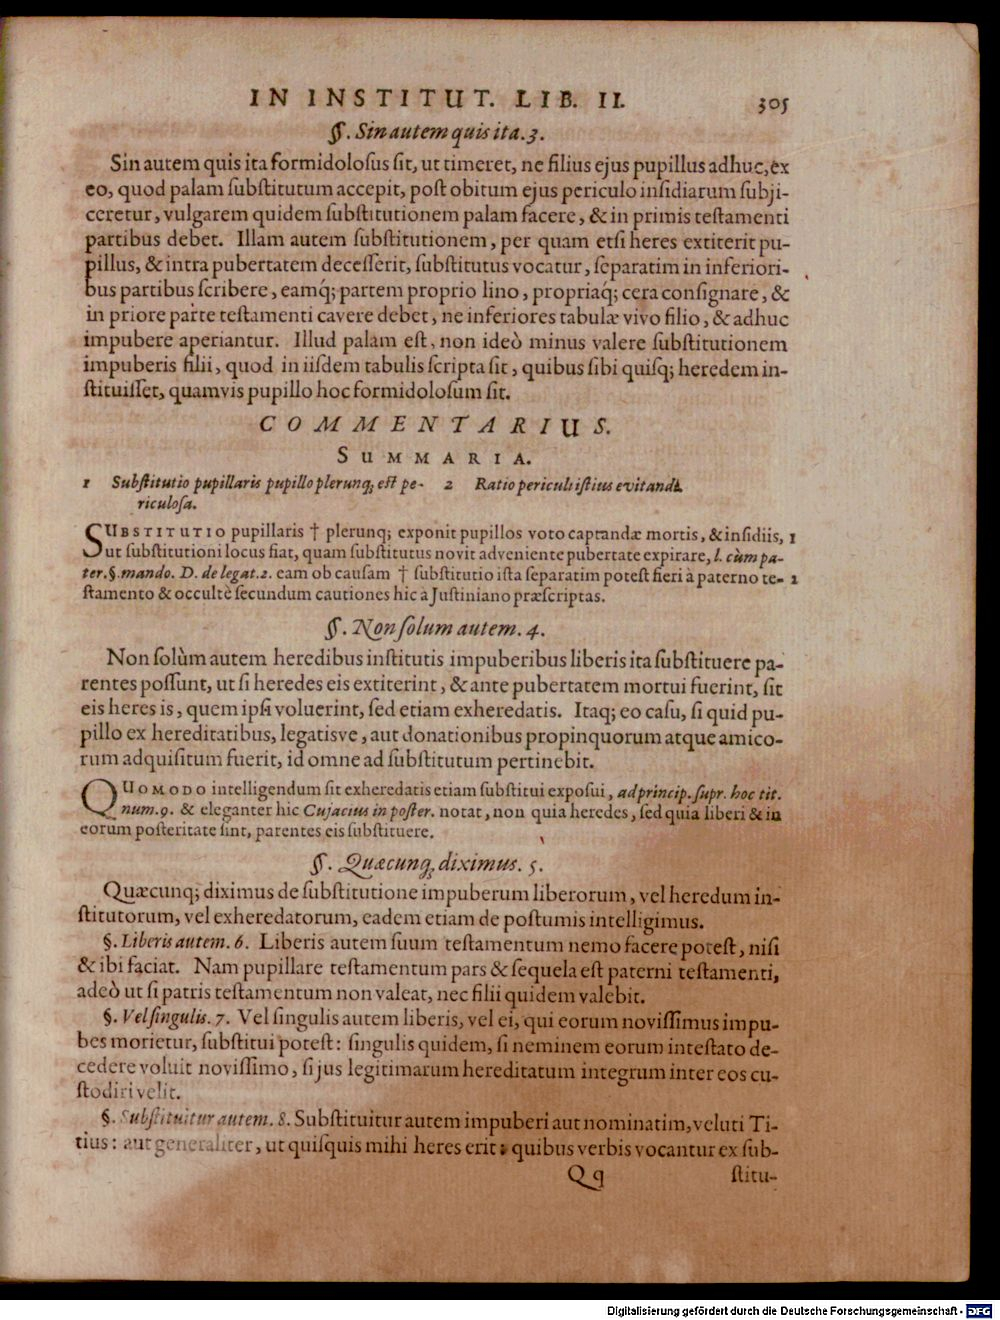 IN INSTITUT. LIB. II. 305
§. Sin autem quis ita. 3.
Sin autem quis ita formidolosus sit, ut timeret, ne filius ejus pupillus adhuc, ex
eo, quod palam substitutum accepit, post obitum ejus periculo insidiarum subji-
ceretur, vulgarem quidem substitutionem palam facere, & in primis testamenti
partibus debet. Illam autem substitutionem, per quam etsi heres extiterit pu-
pillus, & intra pubertatem decesserit, substitutus vocatur, separatim in inferiori-
bus partibus scribere, eamq; partem proprio lino, propriaq; cera consignare, &
in priore parte testamenti cavere debet, ne inferiores tabulæ vivo filio, & adhuc
impubere aperiantur. Illud palàm est, non ideò minus valere substitutionem
impuberis filii, quod in iisdem tabulis scripta sit, quibus sibi quisq; heredem in-
stituisset, quamvis pupillo hoc formidolosum sit.
COMMENTARIUS.
SUMMARIA.
1 Substitutio pupillaris pupillo plerunq; est pe-
riculosa.
2 Ratio periculi istius evitandi.
SUBSTITUTIO pupillaris † plerunq; exponit pupillos voto captandæ mortis, & insidiis, 1
ut substitutioni locus fiat, quam substitutus novit adveniente pubertate expirare, l. cùm pa-
ter. §. mando. D. de legat. 2. eam ob causam † substitutio ista separatim potest fieri à paterno te- 2
stamento & occultè secundum cautiones hic à Justiniano præscriptas.
§. Non solum autem. 4.
Non solùm autem heredibus institutis impuberibus liberis ita substituere pa-
rentes possunt, ut si heredes eis extiterint, & ante pubertatem mortui fuerint, sit
eis heres is, quem ipsi voluerint, sed etiam exheredatis. Itaq; eo casu, si quid pu-
pillo ex hereditatibus, legatisve, aut donationibus propinquorum atque amico-
rum adquisitum fuerit, id omne ad substitutum pertinebit.
QUOMODO intelligendum sit exheredatis etiam substitui exposui, ad princip. supr. hoc tit.
num. 9. & eleganter hic Cujacius in poster. notat, non quia heredes, sed quia liberi & in
eorum posteritate sint, parentes eis substituere.
§. Quæcunq; diximus. 5.
Quæcunq; diximus de substitutione impuberum liberorum, vel heredum in-
stitutorum, vel exheredatorum, eadem etiam de postumis intelligimus.
§. Liberis autem. 6. Liberis autem suum testamentum nemo facere potest, nisi
& ibi faciat. Nam pupillare testamentum pars & sequela est paterni testamenti,
adeò ut si patris testamentum non valeat, nec filii quidem valebit.
§. Vel singulis. 7. Vel singulis autem liberis, vel ei, qui eorum novissimus impu-
bes morietur, substitui potest: singulis quidem, si neminem eorum intestato de-
cedere voluit novissimo, si jus legitimarum hereditatum integrum inter eos cu-
stodiri velit.
§. Substituitur autem. 8. Substituitur autem impuberi aut nominatim, veluti Ti-
tius: aut generaliter, ut quisquis mihi heres erit: quibus verbis vocantur ex sub-
Qq stitu-
Digitalisierung gefördert durch die Deutsche Forschungsgemeinschaft - DFG